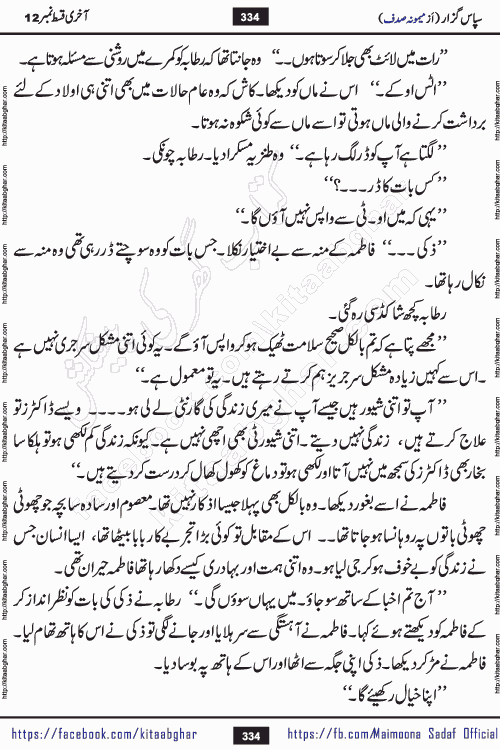 سپاس گزار (از میمونہ صدف)
334
آخری قسط نمبر 12
’’رات میں لائٹ بھی جلا کر سوتا ہوں۔۔‘‘ وہ جانتا تھا کہ رطابہ کو کمرے میں روشنی سے مسئلہ ہوتا ہے۔
’’اٹس اوکے۔‘‘ اس نے ماں کو دیکھا۔ کاش کہ وہ عام حالات میں بھی اتنی ہی اولاد کے لئے
برداشت کرنے والی ماں ہوتی تو اسے ماں سے کوئی شکوہ نہ ہوتا۔
’’لگتا ہے آپ کو ڈر لگ رہا ہے۔‘‘ وہ طنزیہ مسکرا دیا۔ رطابہ چونکی۔
’’کس بات کا ڈر۔۔۔؟‘‘
’’یہی کہ میں او۔ٹی سے واپس نہیں آؤں گا۔‘‘
’’ذکی۔۔۔‘‘ فاطمہ کے منہ سے بے اختیار نکلا۔ جس بات کو وہ سوچتے ڈر رہی تھی وہ منہ سے
نکال رہا تھا۔
رطابہ کچھ شاکڈ سی رہ گئی۔
’’مجھے پتا ہے کہ تم بالکل صحیح سلامت ٹھیک ہو کر واپس آؤ گے۔ یہ کوئی اتنی مشکل سرجری نہیں ہے
۔اس سے کہیں زیادہ مشکل سرجریز ہم کرتے رہتے ہیں۔ یہ تو معمول ہے۔‘‘
’’آپ تو اتنی شیور ہیں جیسے آپ نے میری زندگی کی گارنٹی لے لی ہو۔۔۔۔ ویسے ڈاکٹرز تو
علاج کرتے ہیں، زندگی نہیں دیتے۔ اتنی شیورٹی بھی اچھی نہیں ہے۔ کیونکہ زندگی کم لکھی ہو تو ہلکا سا
بخار بھی ڈاکٹرز کی سمجھ میں نہیں آتا اور لکھی ہو تو دماغ کو کھول کھال کر درست کر دیتے ہیں۔‘‘
فاطمہ نے اسے بغور دیکھا۔ وہ بالکل بھی پہلا جیسا اذکا نہیں تھا۔ معصوم اور سادہ سا بچہ جو چھوٹی
چھوٹی باتوں پہ روہانسا ہو جاتا تھا۔۔ اس کے مقابل تو کوئی بڑا تجربے کار بابا بیٹھا تھا، ایسا انسان جس
نے زندگی کو بے خوف ہو کر جی لیا ہو۔ وہ اتنی ہمت اور بہادری کیسے دکھا رہا تھا فاطمہ حیران تھی۔
’’آج تم اخبا کے ساتھ سو جاؤ۔ میں یہاں سوؤں گی۔‘‘ رطابہ نے ذکی کی بات کو نظر انداز کر
کے فاطمہ کو دیکھتے ہوئے کہا۔ فاطمہ نے آہستگی سے سر ہلایا اور جانے لگی تو ذکی نے اس کا ہاتھ تھام لیا۔
فاطمہ نے مڑ کر دیکھا۔ ذکی اپنی جگہ سے اٹھا اور اس کے ہاتھ پہ بوسا دیا۔
’’اپنا خیال رکھیئے گا۔‘‘
https://facebook.com/kitaabghar
334
https://fb.com/Maimoona Sadaf Official
http://kitaabghar.com